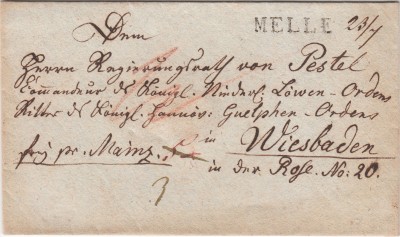 MELLE 23/7
Dem
Herrn Regierungsrath von Pestel
Commandeur des Königl. Niederl. Löwen-Ordens
Ritter des Königl. Hannöv: Guelphen-Ordens
in
frey pr. Mainz.
Wiesbaden
in der Rose. No: 20.
3